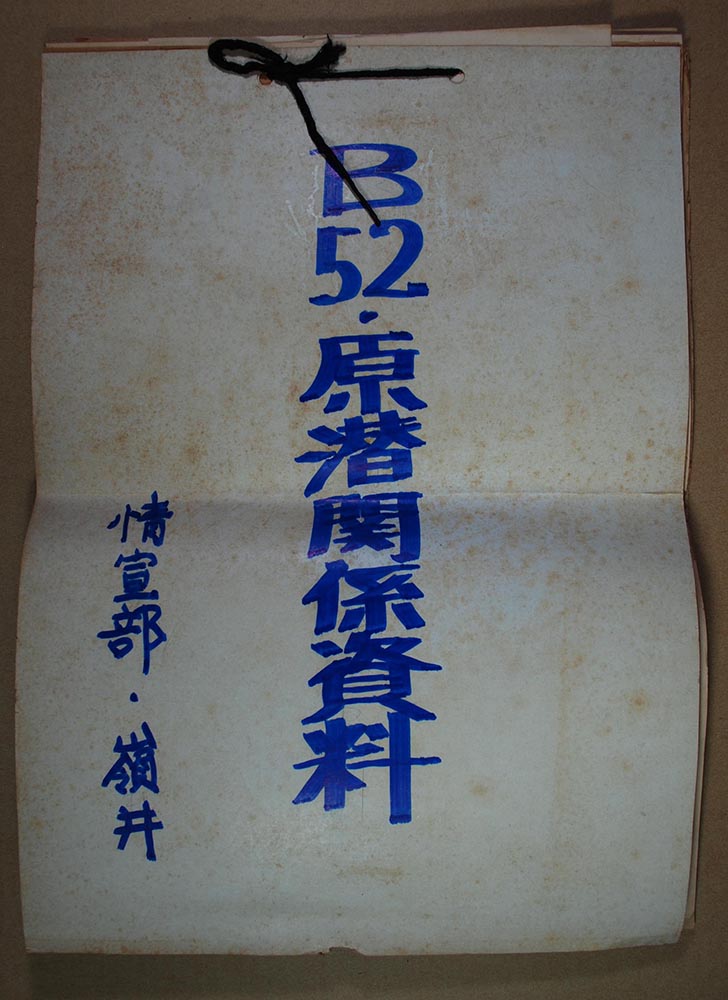 B52・原潜関係資料
情宣部・嶺井